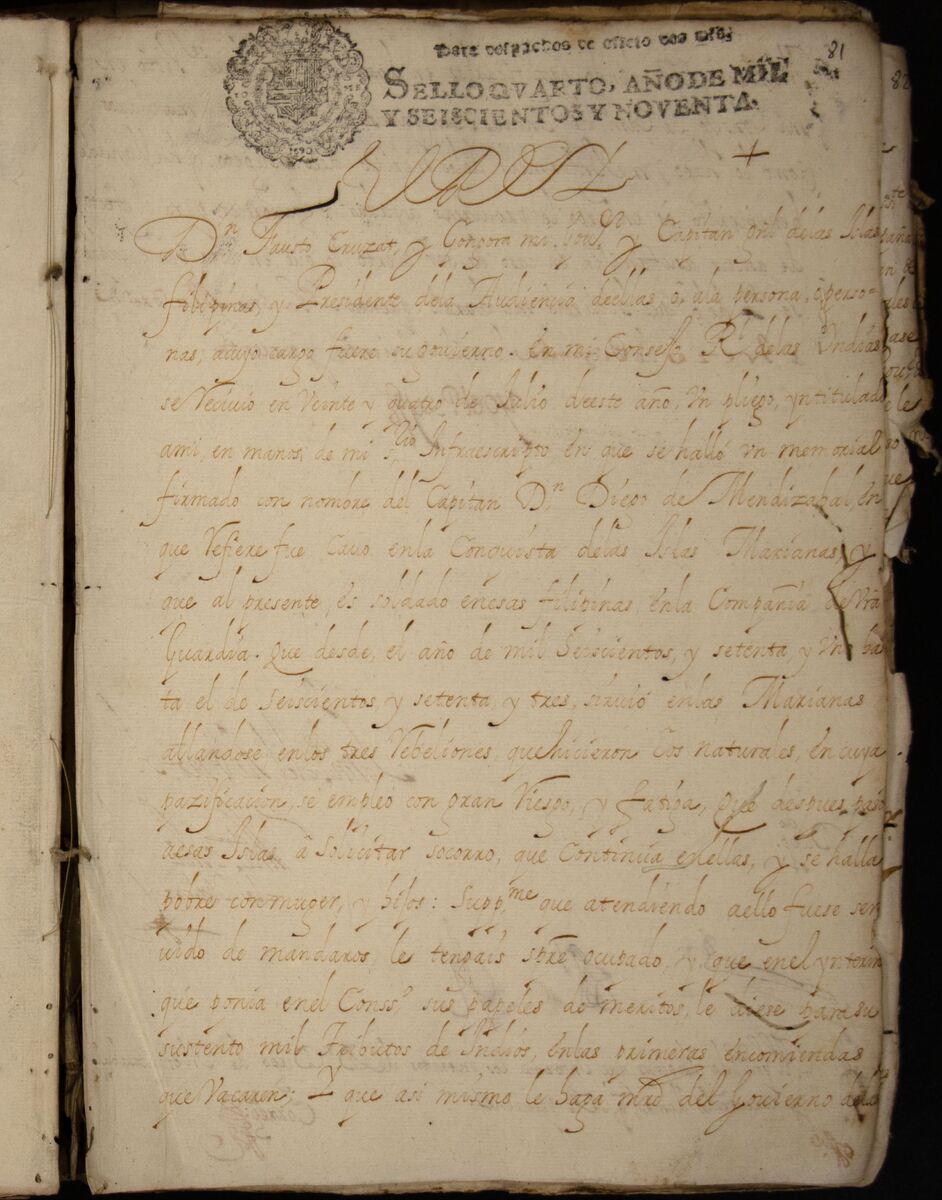 81
Para despachos de oficio dos mrs,
SELLO QVARTO, AÑO DE MIL
Y SEISCIENTOS Y NOVENTA.
El Rey +
Dn. Fausto Cruzat, y Gongora mi Gour. y Capitan Gnl delas Islas
filipinas, y Presidente dela Audiencia deellas, ò, ala persona, ò perso-
nas, acuyo cargo fuere su gouierno. En mi Consejo Rl. delas Yndias
se Reciuió en Veinte y quatro de Julio deeste año, Vn pliego, yntitulado
ami, en manos de mi srio. Infraescripto en que se halló vn memorial
firmado con nombre del Capitan Dn. Diego de Mendizabal, en
que Refiere fue Cauo enla Conquista delas Islas Marianas, y
que al presente es soldado enesas filipinas, enla Compañia de Vra
Guardia. Que desde, el año de mil Seiscientos, y setenta, y Vno has
ta el de seiscientos, y setenta, y tres, siruió enlas Marianas
allandose, enlos tres Rebeliones, quehicieron los naturales, en cuya
pazificacion, se empleó con gran Riesgo, y fatiga, Que despues, pasó
aesas Islas à Solicitar socorro, que Continúa enellas, y se halla
pobre conmuger, y hijos: Suppme. que atendiendo aello fuese ser
uido de mandaros, le tengais spre ocupado, y que enel ynterin
que ponia enel Conss.o sus papeles de meritos, le diese parasu
sustento mil Tributos de Indios, enlas primeras encomiendas
que Vacaren; Y que asi mismo le haga mrd del Gouierno dela